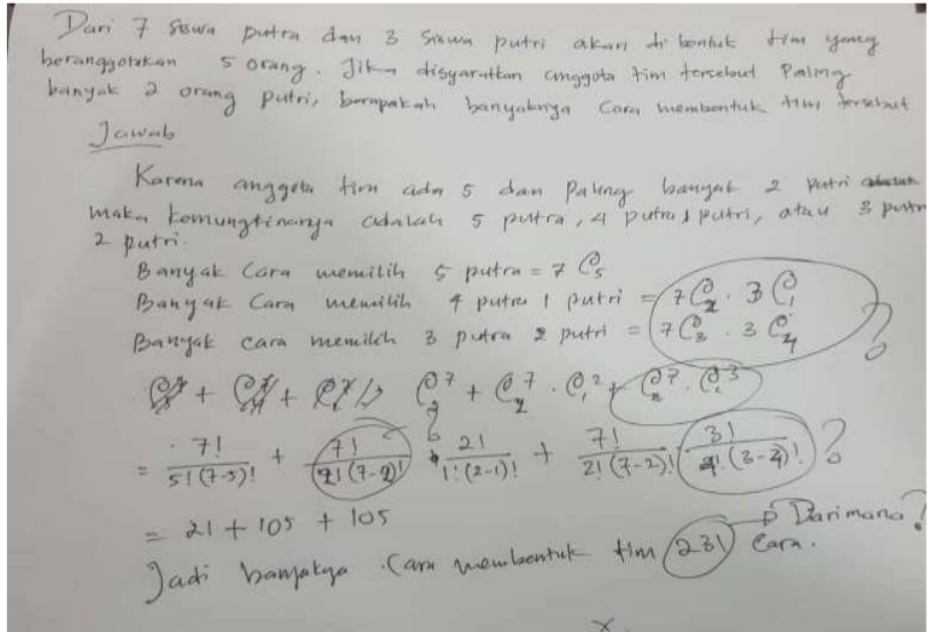 Dari 7 siswa putra dan 3 siswa putri akan di bentuk tim yang
beranggotakan 5 orang. Jika disyaratkan anggota tim tersebut Paling
banyak 2 orang putri, berapakah banyaknya Cara membentuk tim tersebut
Jawab
Karena anggota tim ada 5 dan Paling banyak 2 putri
maka kemungkinanya adalah 5 putra, 4 putra 1 putri, atau 3 putra
2 putri.
Banyak Cara memilih 5 putra = 7 C₅
Banyak Cara memilih 4 putra 1 putri = 7 C₂ . 3 C₁
Banyak cara memilih 3 putra 2 putri = 7 C₃ . 3 C₄ ?
C⁷ + C₂⁷ . C₁² + C₂⁷ . C₂³
= 7!/5!(7-5)! + 7!/2!(7-2)! 2!/1!(2-1)! + 7!/2!(7-2)! 3!/(3-2)! ?
= 21 + 105 + 105
Darimana?
Jadi banyaknya Cara membentuk tim 231 Cara.
x